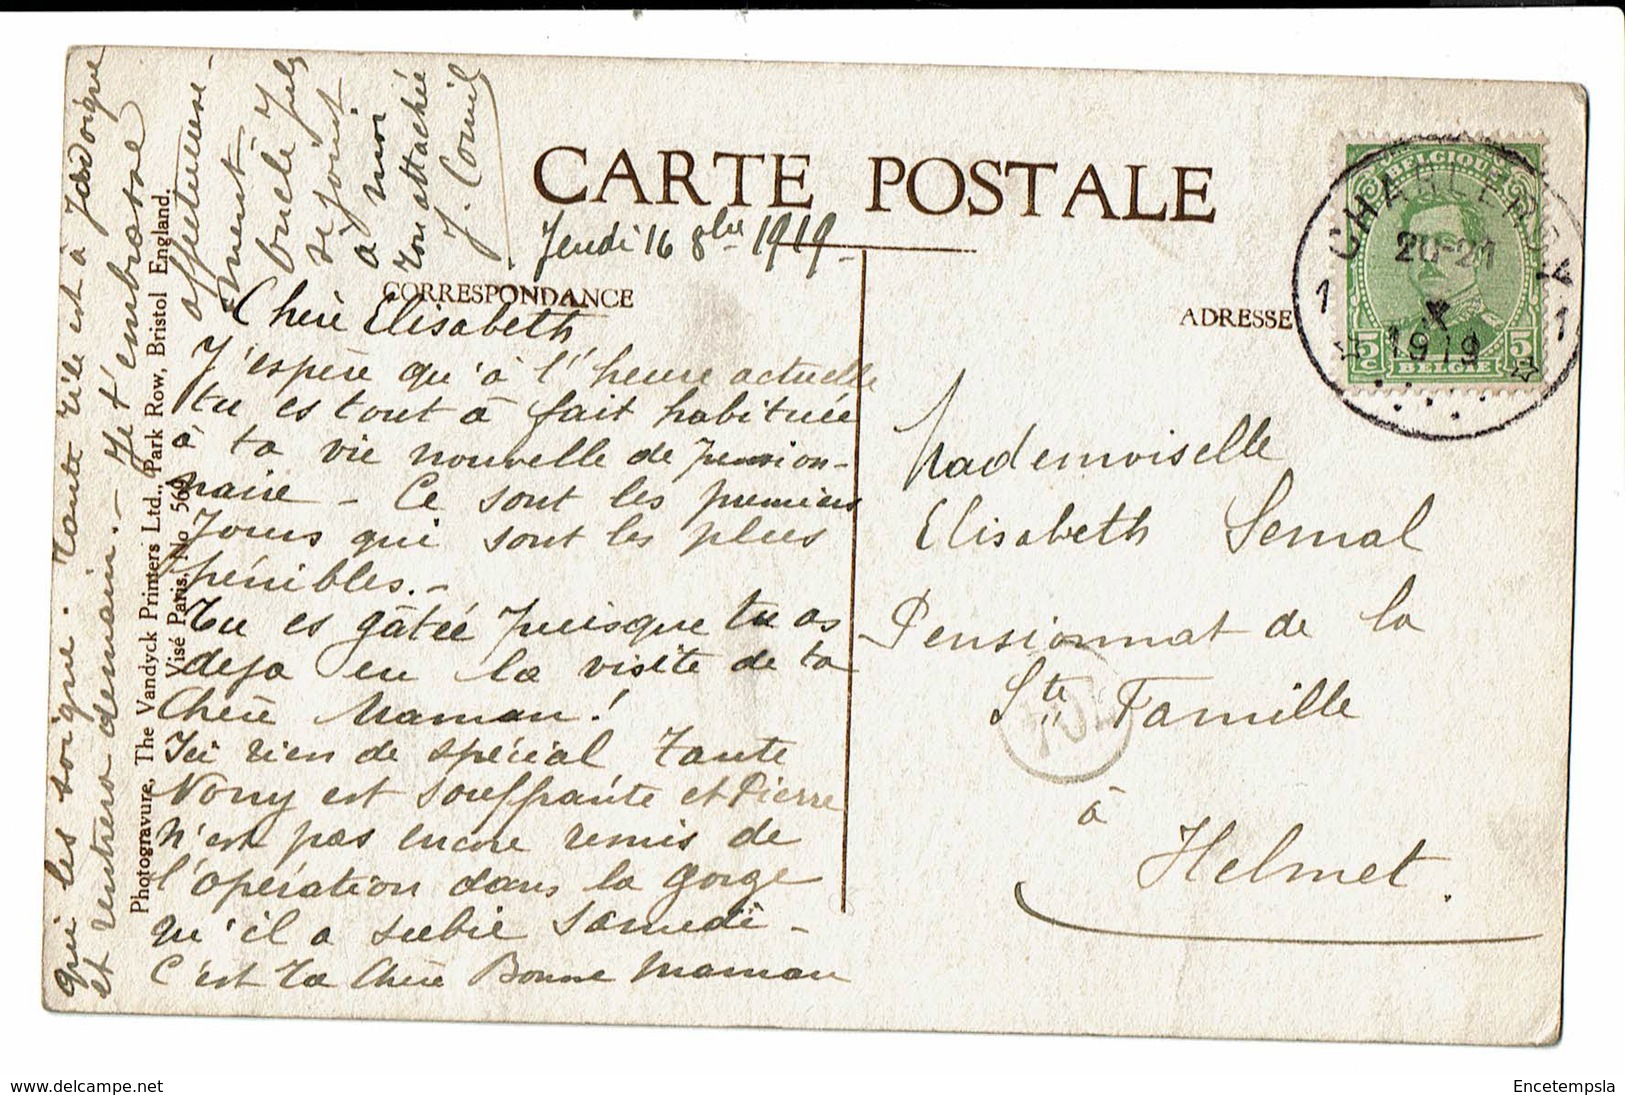 CARTE POSTALE
CORRESPONDANCE
ADRESSE
Jeudi 16 8bre 1919.
Chère Elisabeth
J'espère qu'à l'heure actuelle
tu es tout à fait habituée
à ta vie nouvelle de pension-
naire - Ce sont les premiers
Jours qui sont les plus
pénibles.-
Tu es gâtée puisque tu as
deja eu la visite de ta
Chère Maman!
Ici rien de spécial Tante
Nony est souffrante et Pierre
n'est pas encore remis de
l'opération dans la gorge
qu'il a subie Samedi -
C'est ta Chère Bonne Maman
qui les soigne. Tante elle est à Jodoigne
et rentrera demain. - Je t'embrasse
affectueuse-
ment
Oncle July
se joint
à moi
Ton attachée
J.
Photogravure, The Vandyck Printers Ltd., Park Row, Bristol England.
Visé Paris, No 569
Mademoiselle
Elisabeth Semal
Pensionnat de la
Ste Famille
à
Helmet.
BELGIQUE
5c BELGIË 5c
CHARLEROY
1 1
20-21
X
1919
www.delcampe.net
Encetempsla